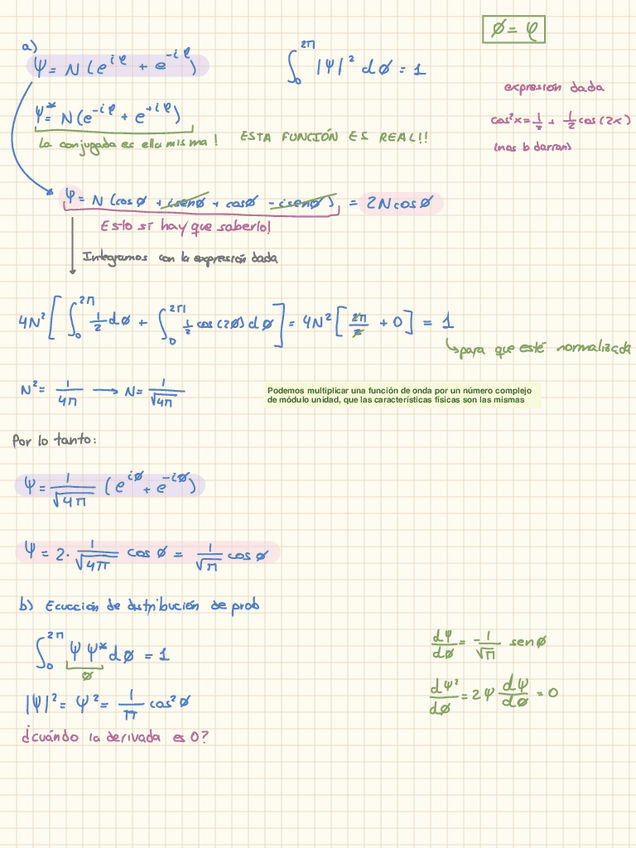 ∅ = φ
a)
Ψ = N (e^{iφ} + e^{-iφ})
∫_0^{2π} |Ψ|² d∅ = 1
expresión dada
Ψ* = N (e^{-iφ} + e^{+iφ})
cos²x = 1/2 + 1/2 cos (2x)
(nos b darran)
la conjugada es ella misma!
ESTA FUNCIÓN ES REAL!!
Ψ = N (cos∅ + isen∅ + cos∅ - isen∅) = 2N cos∅
Esto sí hay que saberlo!
Integramos con la expresión dada
4N² [ ∫_0^{2π} 1/2 d∅ + ∫_0^{2π} 1/2 cos (2∅) d∅ ] = 4N² [ 2π/2 + 0 ] = 1
para que esté normalizada
N² = 1/4π → N = 1/√4π
Podemos multiplicar una función de onda por un número complejo
de módulo unidad, que las características físicas son las mismas
Por lo tanto:
Ψ = 1/√4π (e^{i∅} + e^{-i∅})
Ψ = 2 · 1/√4π cos ∅ = 1/√π cos ∅
b) Ecucción de distribución de prob
∫_0^{2π} Ψ Ψ* d∅ = 1
∅
dΨ/d∅ = -1/√π sen∅
|Ψ|² = Ψ² = 1/π cos²∅
dΨ²/d∅ = 2Ψ dΨ/d∅ = 0
¿cuándo la derivada es 0?